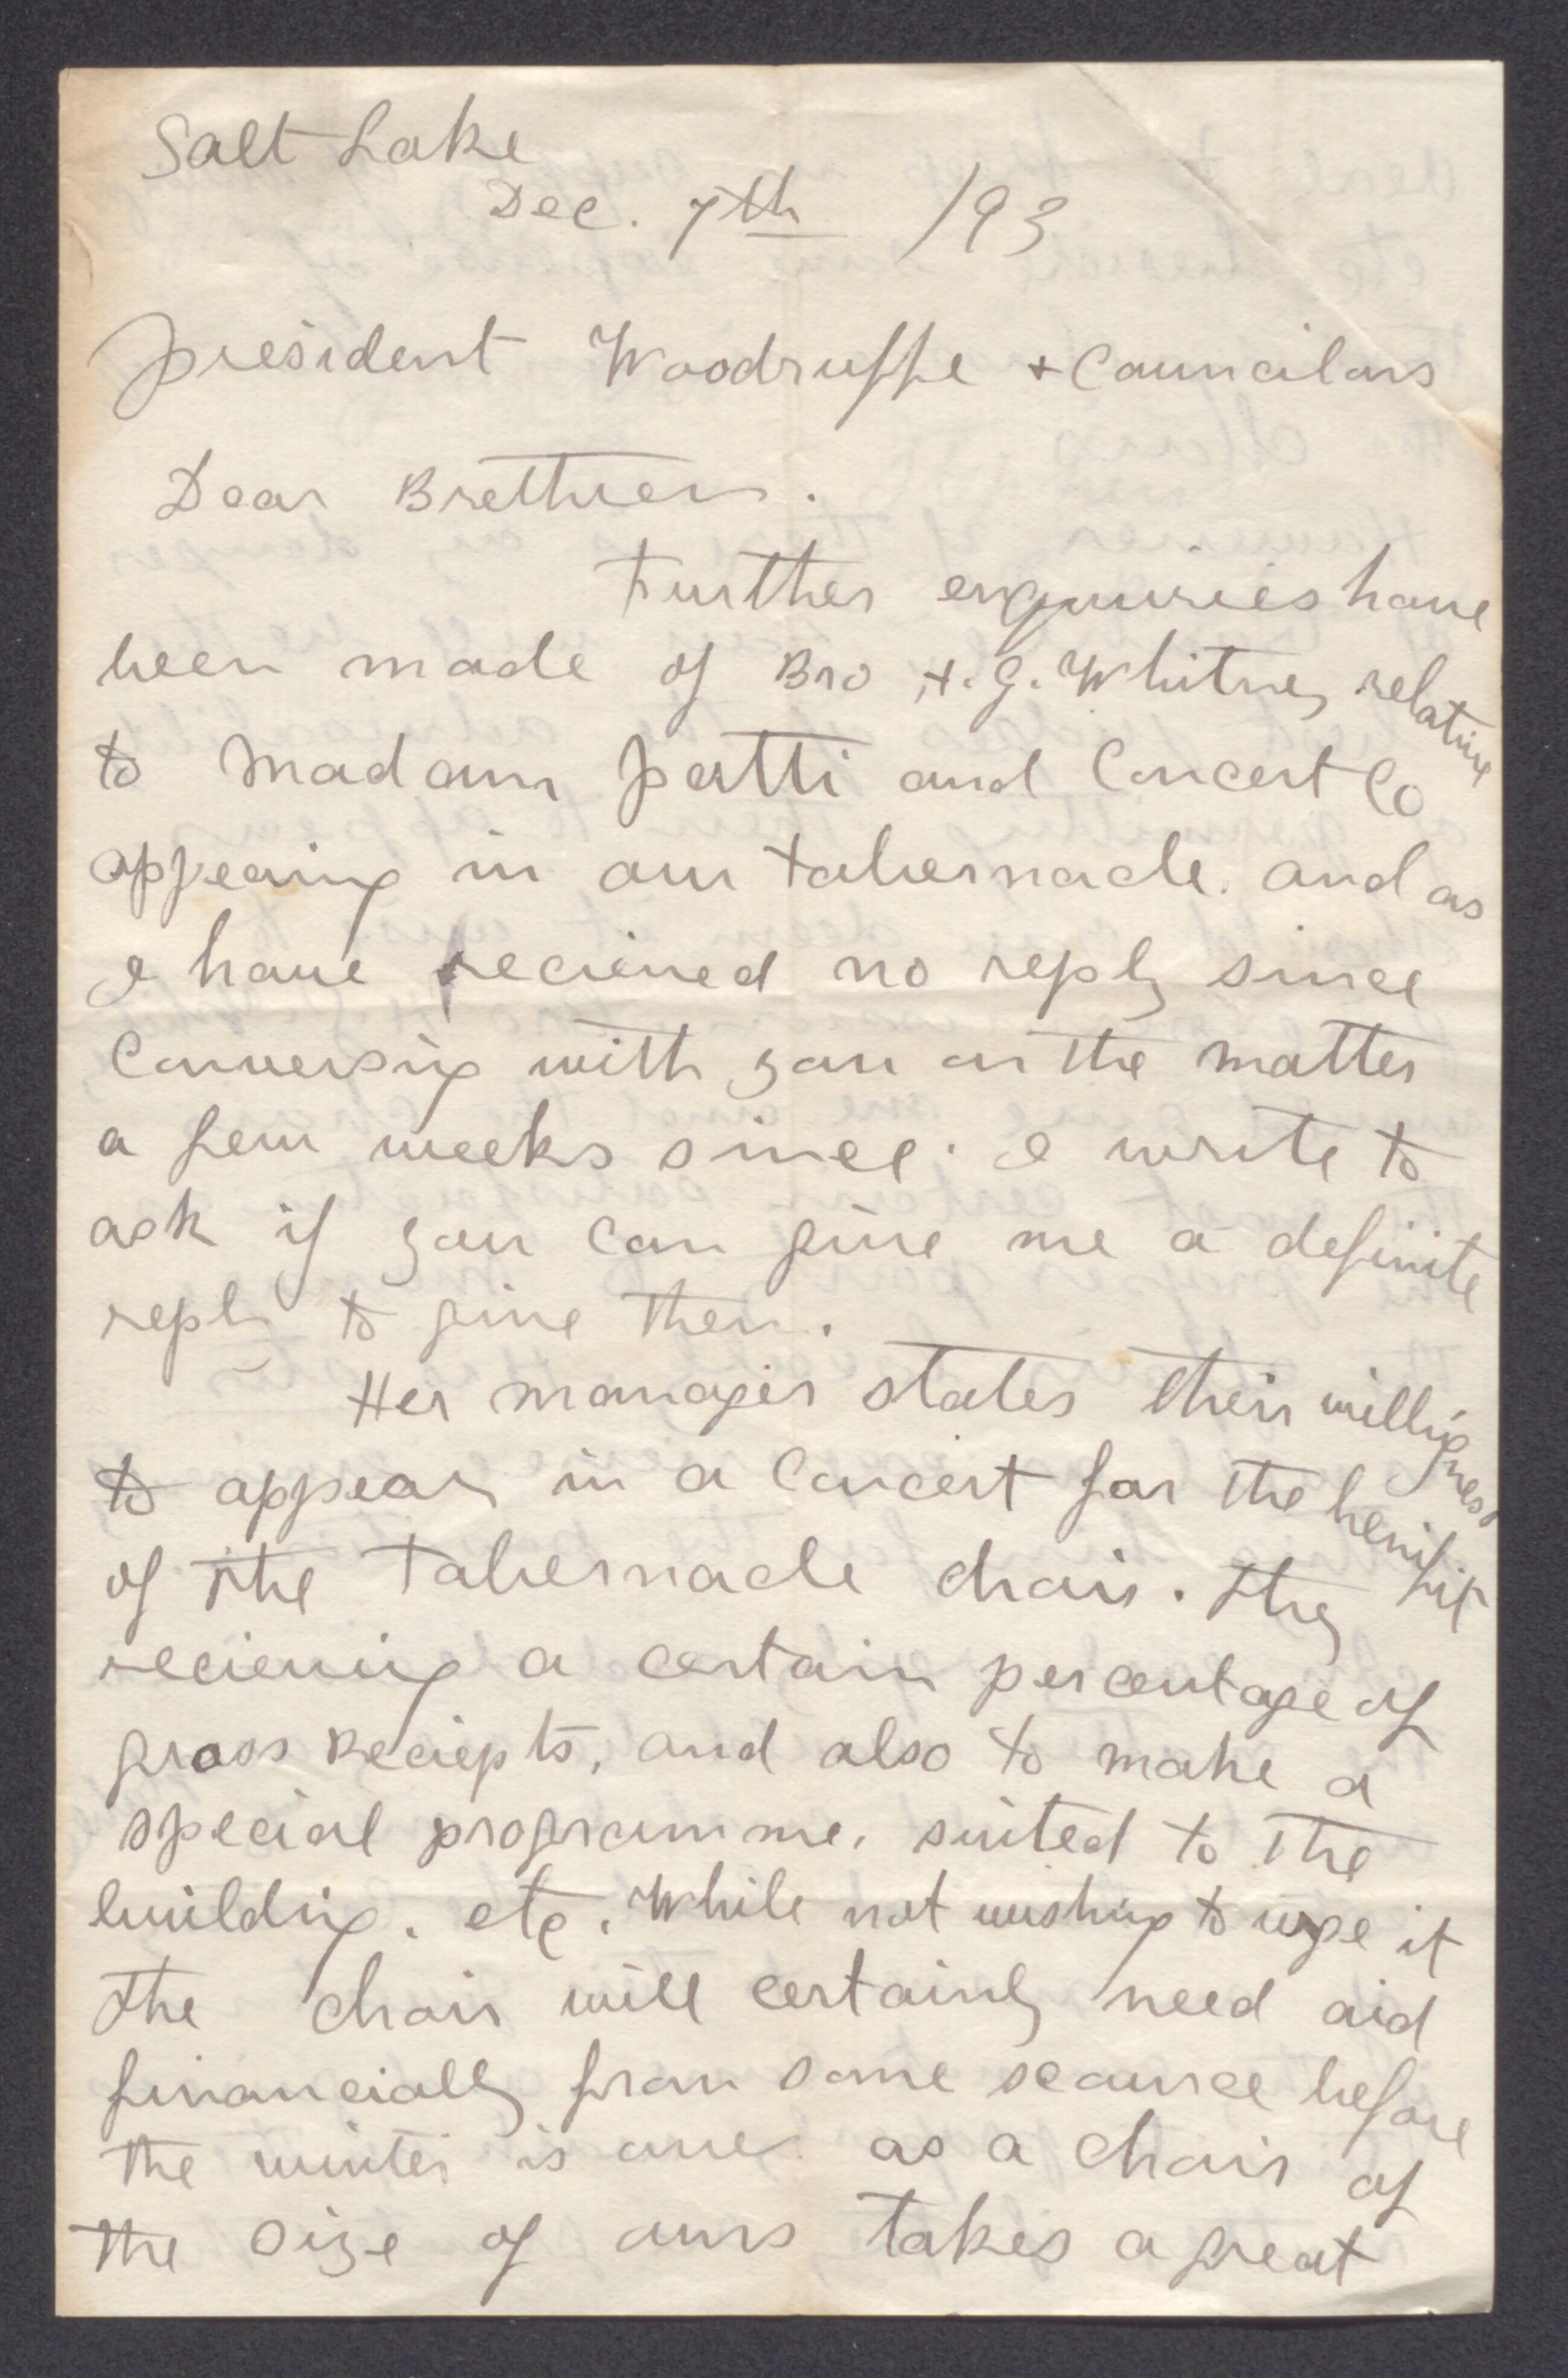 Salt Lake
Dec. 7th /93
President Woodruffe + Councilors
Dear Brethren.
Further enquiries have
been made of Bro H. G. Whitney relative
to Madam Patti and Concert Co
appearing in our tabernacle. and as
I have recieved no reply since
Conversing with you on the matter
a few weeks since. I write to
ask if you can give me a definite
reply to give them.
Her manager states their willingness
to appear in a Concert for the benifit
of the Tabernacle choir. they
recieving a certain percentage of
gross Reciepts, and also to make a
special programme, suited to the
building. etc. While not wishing to urge it
the choir will certainly need aid
financially from some scource before
the winter is over as a choir of
the size of ours takes a great